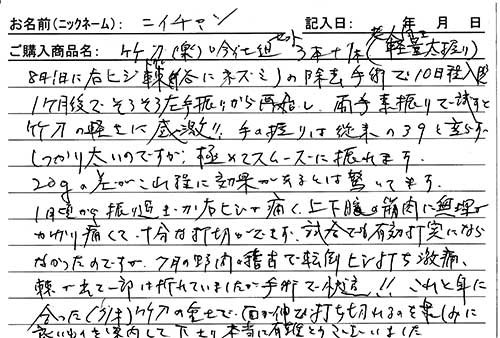 お名前(ニックネーム): ニイチャン 記入日: 年 月 日
ご購入商品名: 竹刀(楽)吟仕組セット3本+1本(軽量太握り)
8月1日に右ヒジ棘 ネズミ)の除去手術で10日程入院
1ヶ月後でそろそろ左手振りから再開し、両手素振りで試すと
竹刀の軽さに感激!! 手の握りは従来の39と変らず
しっかり太いのですが、極めてスムースに振れます。
20gの差がこれ程に効果があるとは驚いてます。
1月頃から振り過 か右ヒジが痛く、上下腕の筋肉に無理が
かかり痛くて、十分な打切ができず、試合でも有効打突になら
なかったのですが、7月の野間の稽古で転倒ヒジ打ち激痛、
棘が 一部は折れていましたが手術で !! これと身に
合った 竹刀の で、面が伸び打ち切れるのを楽しみに
良いものを案内して下さり本当に有難とうございました